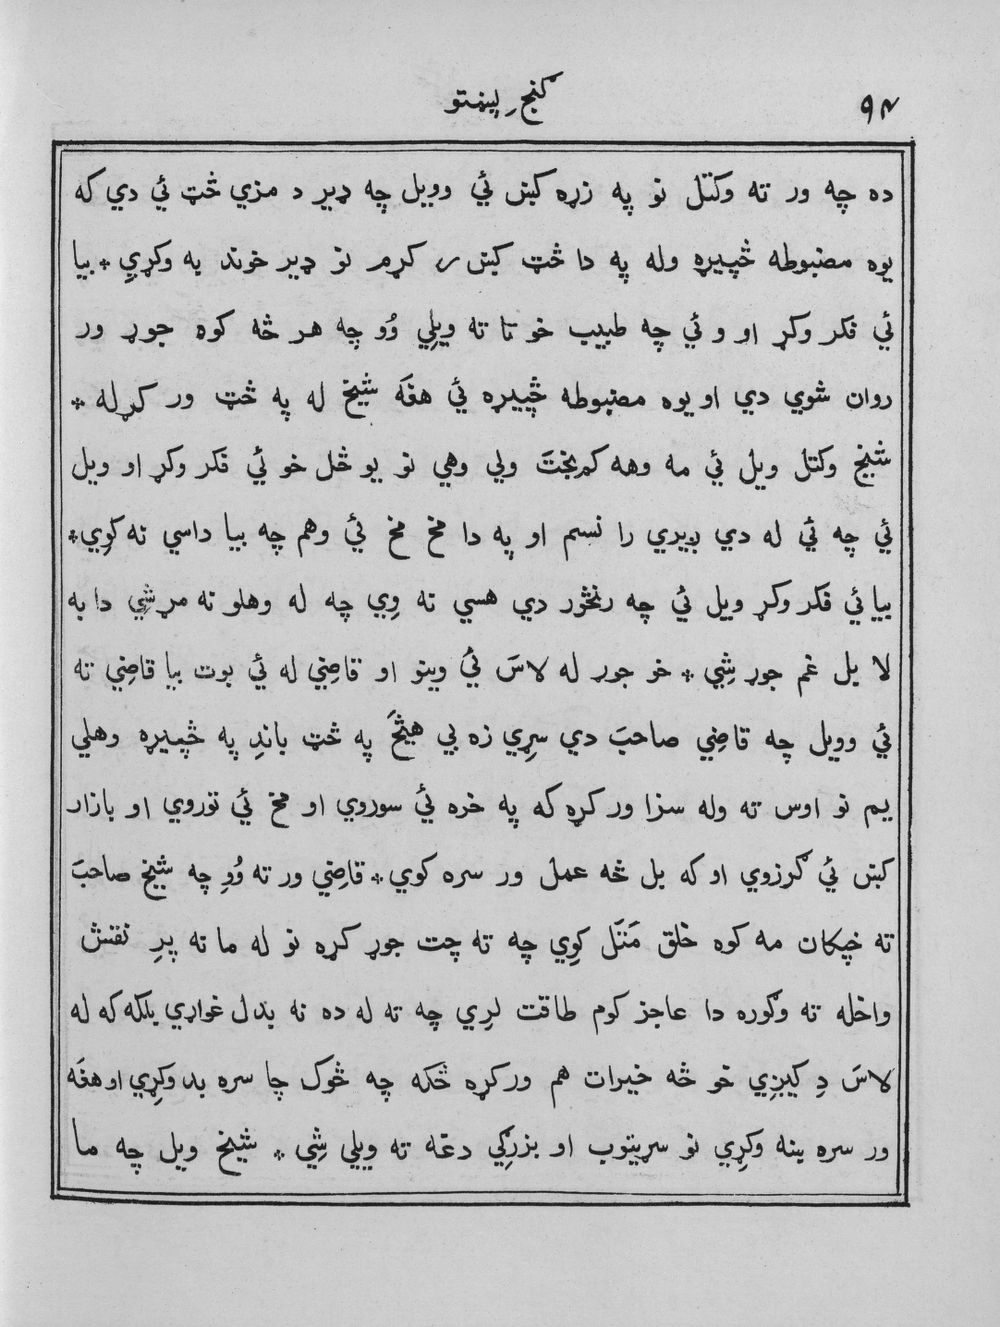 ۹۴ گنج پښتو
ده چه ور ته وکتل نو په زړه کښ ئي وويل چه ډير د مزي څټ ئي دي که
يوه مضبوطه څپيړه وله په دا څټ کښ ر کړم نو ډير خوند به وکړي * بيا
ئي فکر وکړ او و ئي چه طبيب خو تا ته ويلي وُو چه هر څه کوه جوړ ور
روان شوي دي او يوه مضبوطه څپيړه ئي هغه شيخ له په څټ ور کړله *
شيخ وکتل ويل ئي مه وهه کم بخت ولي وهي نو يو ځل خو ئي فکر وکړ او ويل
ئي چه ئي له دي ږيري را نسم او په دا مخ مخ ئي وهم چه بيا داسي نه کوي *
بيا ئي فکر وکړ ويل ئي چه رنځور دي هسي نه وي چه له وهلو نه مړ شي دا به
لا بل غم جوړ شي * خو جوړ له لاس ئي وينو او قاضي له ئي بوت بيا قاضي ته
ئي وويل چه قاضي صاحب دي سړي زه بي هيڅ په څټ باندِ په څپيړه وهلي
يم نو اوس ته وله سزا ور کړه که په خره ئي سوروي او مخ ئي توروي او بازار
کښ ئي گرزوي او که بل څه عمل ور سره کوي * قاضي ور ته وُو چه شيخ صاحب
ته خپکان مه کوه خلق مَتَل کوي چه ته چت جوړ کړه نو له ما نه پرِ نقش
واخله ته وگوره دا عاجز کوم طاقت لري چه ته له ده نه بدل غواړي بلکه که له
لاس دِ کيږي خو څه خيرات هم ور کړه ځکه چه څوک چا سره بد وکړي او هغه
ور سره ښه وکړي نو سړيتوب او بزرگي دغه ته ويلي شي * شيخ ويل چه ما